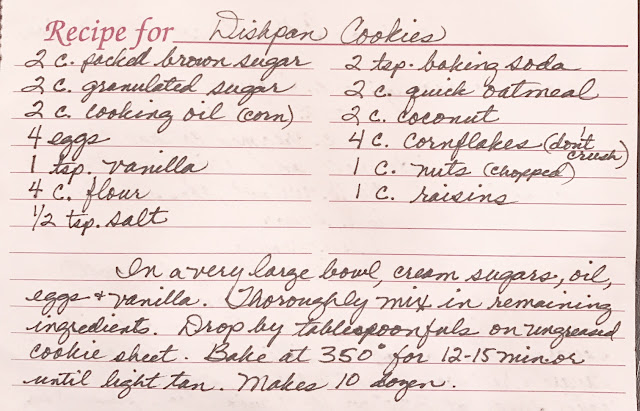 Recipe for Dishpan Cookies
2 c. packed brown sugar
2 c. granulated sugar
2 c. cooking oil (corn)
4 eggs
1 tsp. vanilla
4 c. flour
1/2 tsp. salt
2 tsp. baking soda
2 c. quick oatmeal
2 c. coconut
4 c. cornflakes (don't crush)
1 c. nuts (chopped)
1 c. raisins
In a very large bowl, cream sugars, oil,
eggs + vanilla. Thoroughly mix in remaining
ingredients. Drop by tablespoonfuls on ungreased
cookie sheet. Bake at 350° for 12-15 min. or
until light tan. Makes 10 dozen.